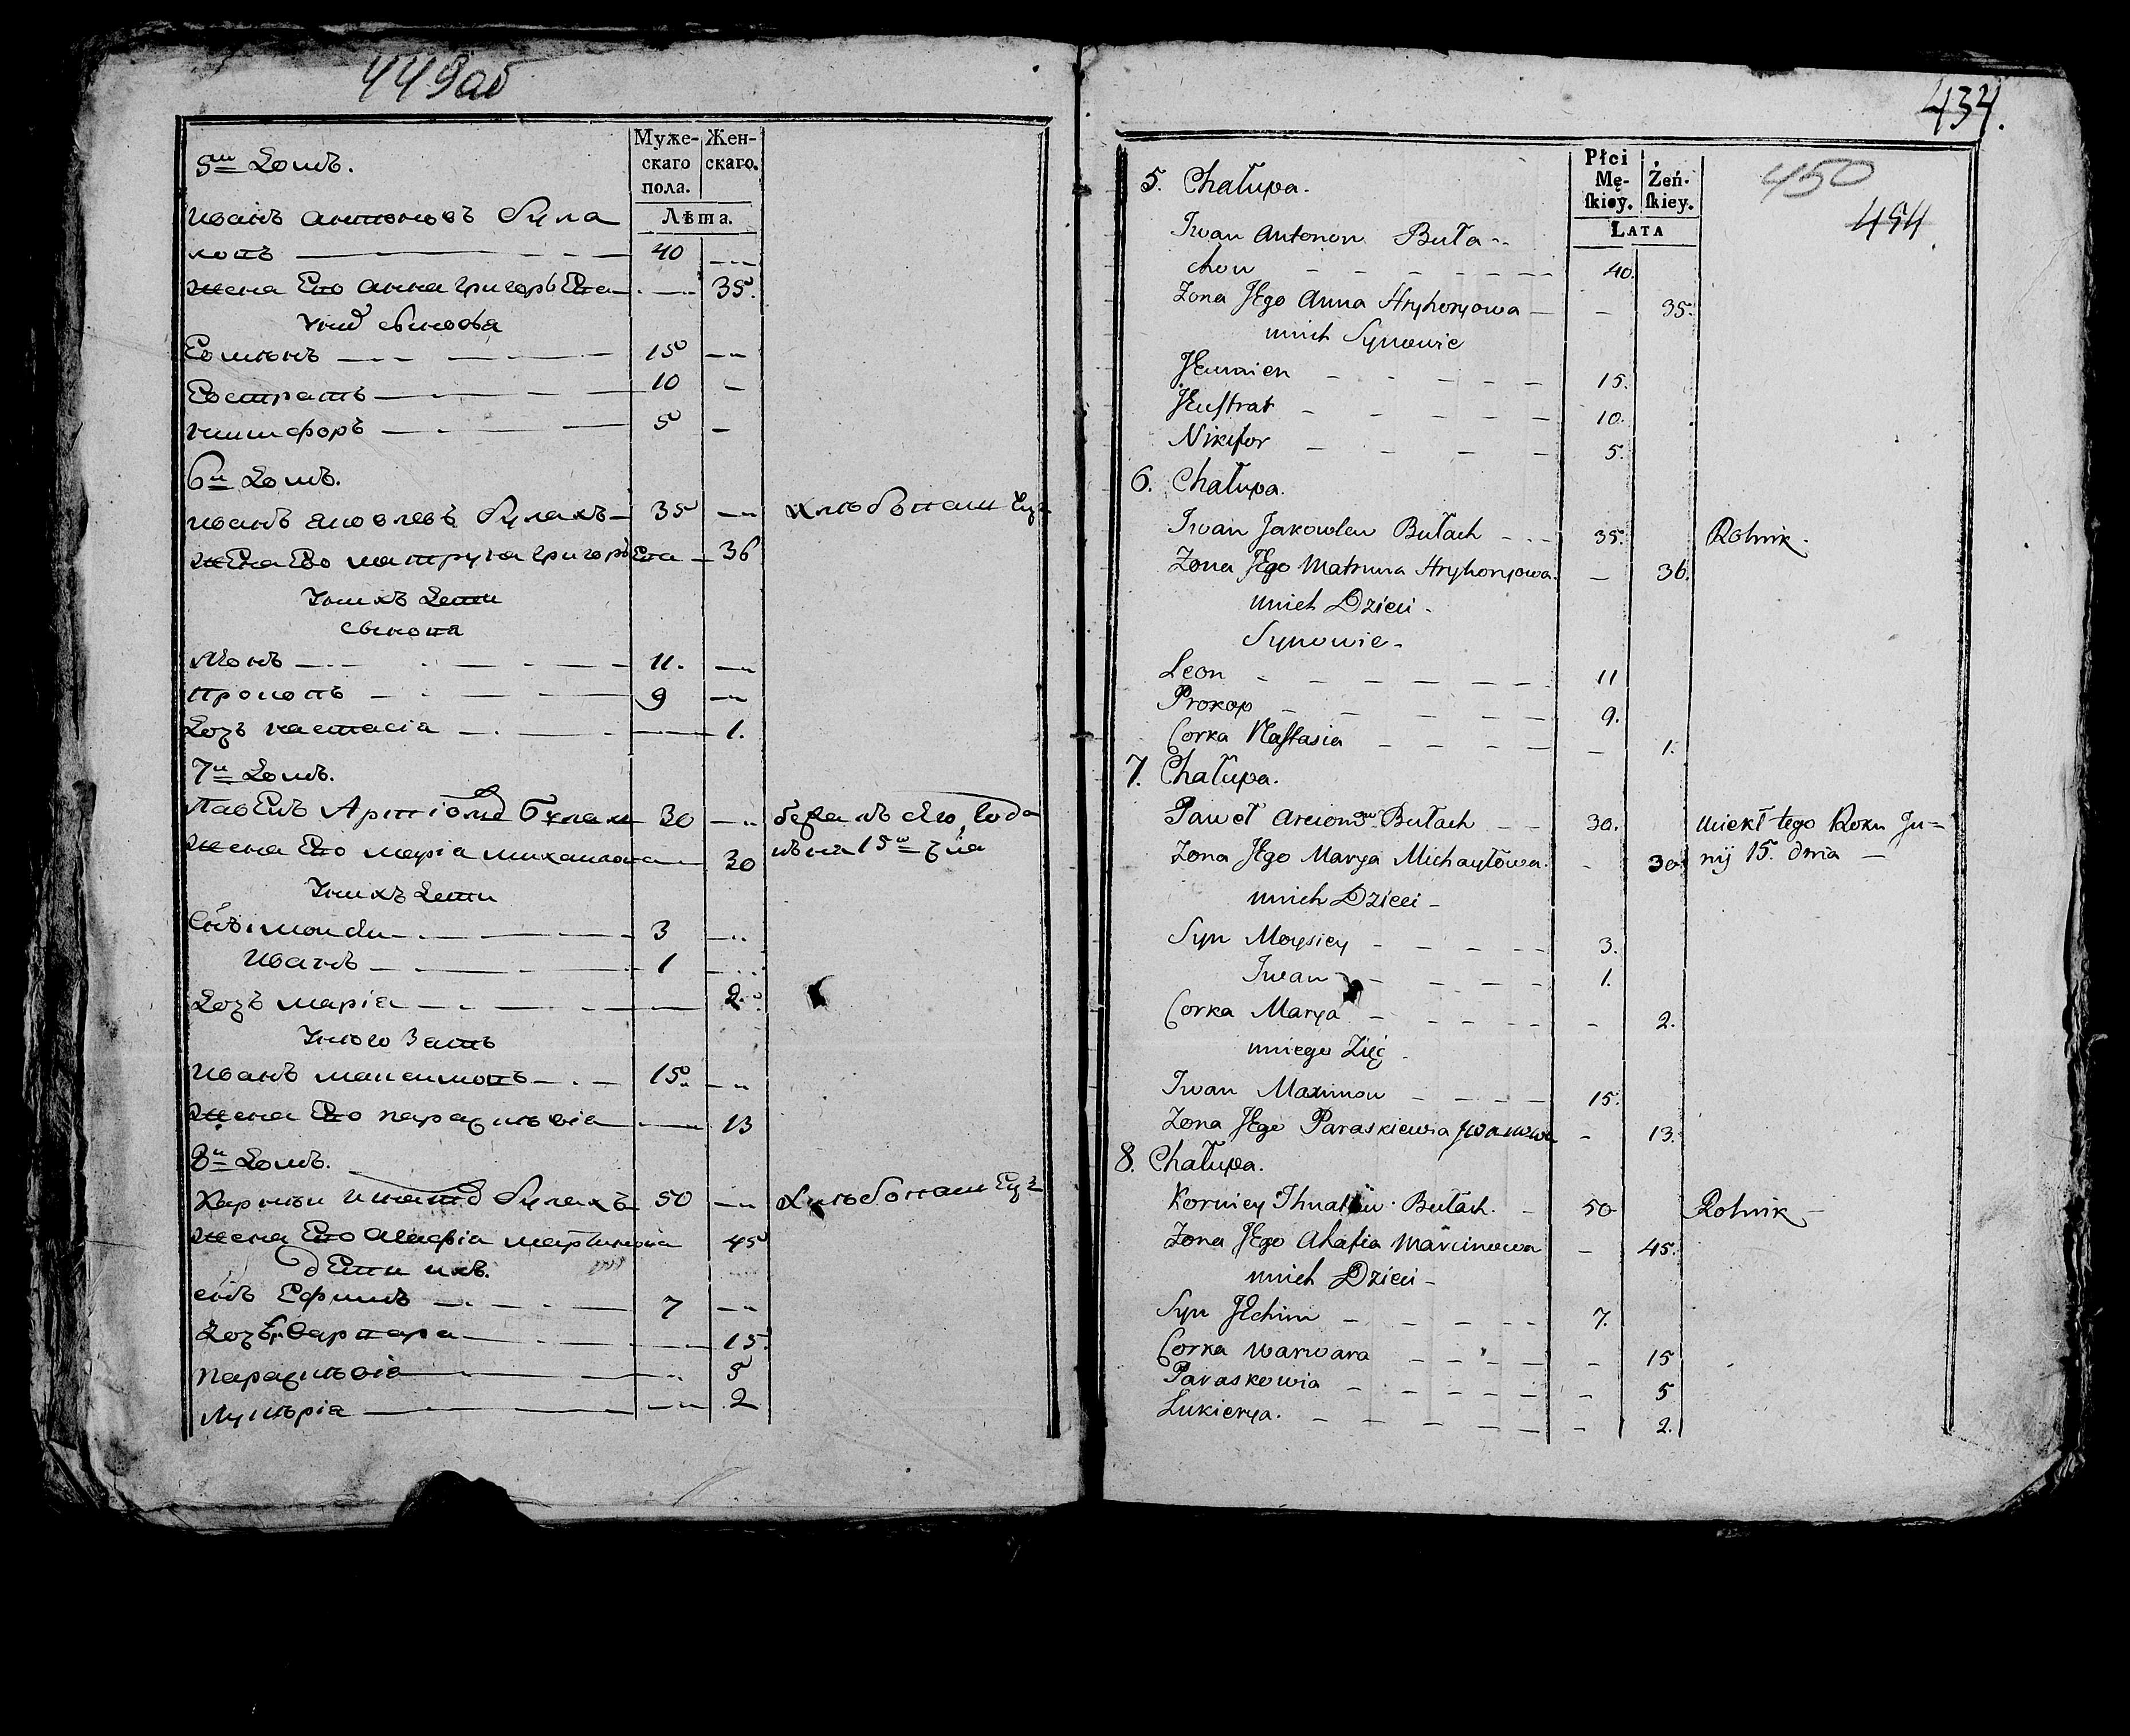 449об
Муже-
скаго
пола.
Жен-
скаго.
Лѣта.
5й Домъ.
Иванъ антоновъ була
ховъ 40
жена Его анна григорьЕва 35.
У них сыновья
Евменъ 15
Евстратъ 10
никифоръ 5
6й Домъ.
иванъ яковлевъ булахъ 35 хлѣбопашЕцъ
жЕна Его матруна григорьЕва 36
У нихъ Дети
сыновя
леонъ 11.
прокопъ 9
Дочъ настасія 1.
7й Домъ.
ПавЕлъ Артіомов Булах 30 бежалъ сего года
жена Его марія михайлова 30 июня 15го дня
У нихъ Дети
Снъ моисей 3
Иванъ 1
Дочъ марія 2.
У него Зять
Иванъ максимовъ 15.
жена Его парасковія 13
8й Домъ.
Карней игнатов булахъ 50 ХлѣбопашЕцъ
жена Его агафія мартинова 45
дЕти ихъ.
снъ Ефимъ 7
Дочъ варвара 15.
парасковія 5
лукерія 2
434.
450
454
Płci
Mę-
ſkiey.
Żeń-
ſkiey.
LATA
5. Chałupa.
Iwan Antonow Buła-
chow 40.
Zona JEgo Anna Hryhoryowa 35.
unich Synowie
JEwmien 15.
JEuſtrat 10.
Nikifor 5.
6. Chałupa.
Iwan Jakowlew Bułach 35. Rolnik.
Zona JEgo Matruna Hryhoryowa. 36.
unich Dzieci
Synowie
Leon 11
Prokop 9.
Corka Naſtasia 1.
7. Chałupa.
Paweł Arciomow Bułach 30. Uciekł tego Roku Ju=
Zona JEgo Marya Michayłowa. 30. nij 15. dnia
unich Dzieci
Syn Moysiey 3.
Iwan 1.
Corka Marya 2.
uniego Zięć
Iwan Maximow 15.
Zona JEgo Paraskiewia Jwanowa 13.
8. Chałupa.
Korniey Ihnatow Bułach. 50 Rolnik
Zona JEgo Ahafia Marcinowa 45.
unich Dzieci
Syn JEchim 7.
Corka Warwara 15
Paraskowia 5
Łukierya. 2.